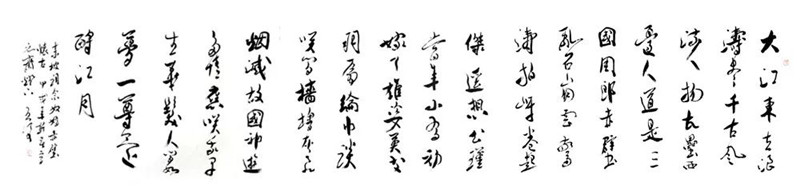 大江東去浪
濤盡千古風
流人物故壘西
邊人道是三
國周郎赤壁
亂石崩雲驚
濤拍岸卷起
傑遙想公瑾
當年小喬初
嫁了雄姿英發
羽扇綸巾談
笑間檣櫓灰飛
烟滅故國神遊
多情應笑我早
生華髮人間
夢一尊還
酹江月
東坡詞念奴嬌赤壁
懷古